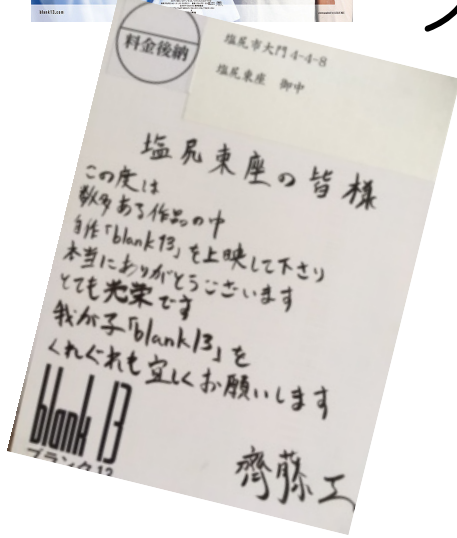 blank13.com
料金後納
塩尻市大門 4-4-8
塩尻東座 御中
塩尻東座の皆様
この度は
数多ある作品の中
自作「blank13」を上映して下さり
本当にありがとうございます
とても光栄です
我が子「blank13」を
くれぐれも宜しくお願いします
blank 13
ブランク13
齊藤工